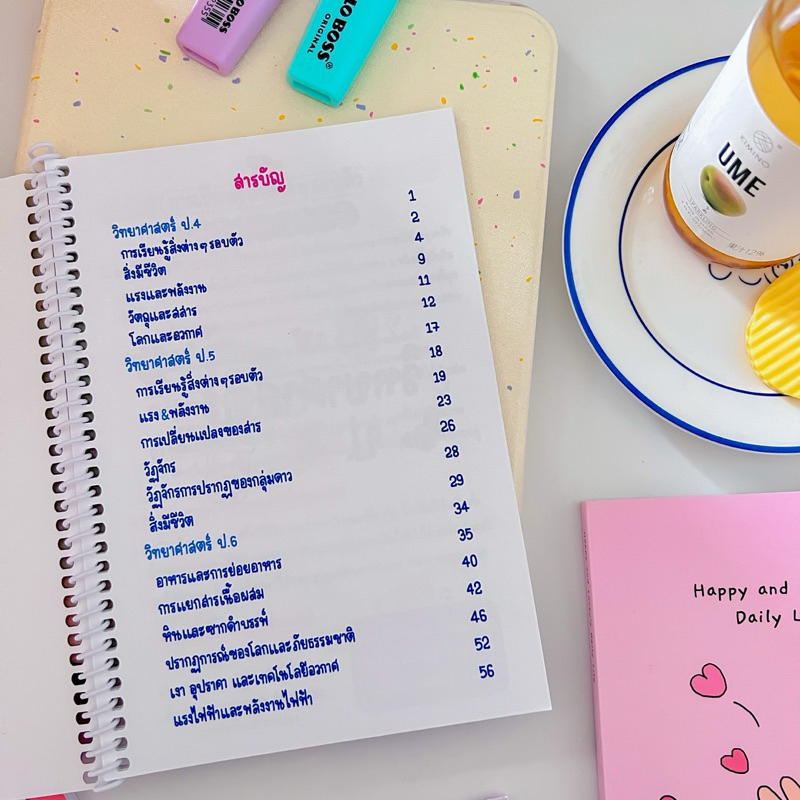 BOSS
BOSS
ORIGINAL
สารบัญ
วิทยาศาสตร์ ป.4 1
การเรียนรู้สิ่งต่างๆรอบตัว 2
สิ่งมีชีวิต 4
แรงและพลังงาน 9
วัตถุและสสาร 11
โลกและอวกาศ 12
วิทยาศาสตร์ ป.5 17
การเรียนรู้สิ่งต่างๆรอบตัว 18
แรง &พลังงาน 19
การเปลี่ยนแปลงของสาร 23
วัฏจักร 26
วัฏจักรการปรากฏของกลุ่มดาว 28
สิ่งมีชีวิต 29
วิทยาศาสตร์ ป.6 34
อาหารและการย่อยอาหาร 35
การแยกสารเนื้อผสม 40
หินและซากดำบรรพ์ 42
ปรากฏการณ์ของโลกและภัยธรรมชาติ 46
เงา อุปราคา และเทคโนโลยีอวกาศ 52
แรงไฟฟ้าและพลังงานไฟฟ้า 56
UME
Happy and
Daily L